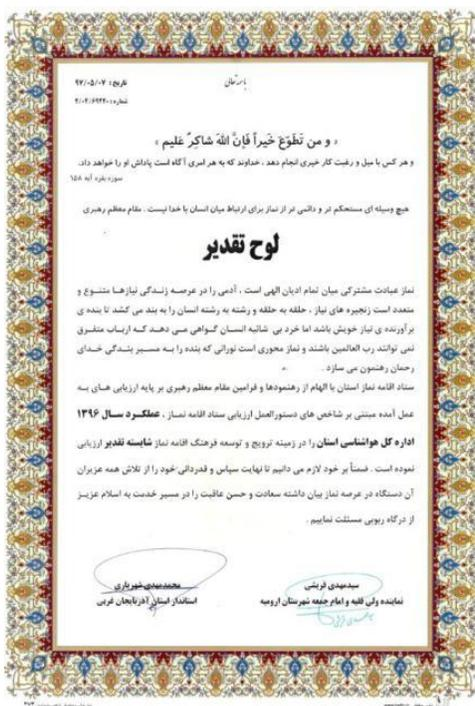 باسمه تعالی
تاریخ: ۹۷/۰۵/۰۷
شماره: ۴/۰۲/۶۹۴۴۰
« و من تَطَوَّعَ خَیراً فَإنَّ اللهَ شاکِرٌ عَلیم »
و هر کس با میل و رغبت کار خیری انجام دهد ، خداوند که به هر امری آگاه است پاداش او را خواهد داد.
سوره بقره آیه ۱۵۸
هیچ وسیله ای مستحکم تر و دائمی تر از نماز برای ارتباط میان انسان با خدا نیست . مقام معظم رهبری
لوح تقدیر
نماز عبادت مشترکی میان تمام ادیان الهی است ، آدمی را در عرصه زندگی نیازها متنوع و
متعدد است زنجیره های نیاز ، حلقه به حلقه و رشته به رشته انسان را به بند می کشد تا بنده ی
برآورنده ی نیاز خویش باشد اما خرد بی شائبه انسان گواهی می دهد که ارباب متفرق
نمی توانند رب العالمین باشند و نماز محوری است نورانی که بنده را به مسیر بندگی خدای
رحمان رهنمون می سازد .
ستاد اقامه نماز استان با الهام از رهنمودها و فرامین مقام معظم رهبری بر پایه ارزیابی های به
عمل آمده مبتنی بر شاخص های دستورالعمل ارزیابی ستاد اقامه نماز ، عملکرد سال ۱۳۹۶
اداره کل هواشناسی استان را در زمینه ترویج و توسعه فرهنگ اقامه نماز شایسته تقدیر ارزیابی
نموده است . ضمناً بر خود لازم می دانیم تا نهایت سپاس و قدردانی خود را از تلاش همه عزیزان
آن دستگاه در عرصه نماز بیان داشته سعادت و حسن عاقبت را در مسیر خدمت به اسلام عزیز
از درگاه ربوبی مسئلت نماییم .
سیدمهدی قریشی
نماینده ولی فقیه و امام جمعه شهرستان ارومیه
محمدمهدی شهریاری
استاندار استان آذربایجان غربی